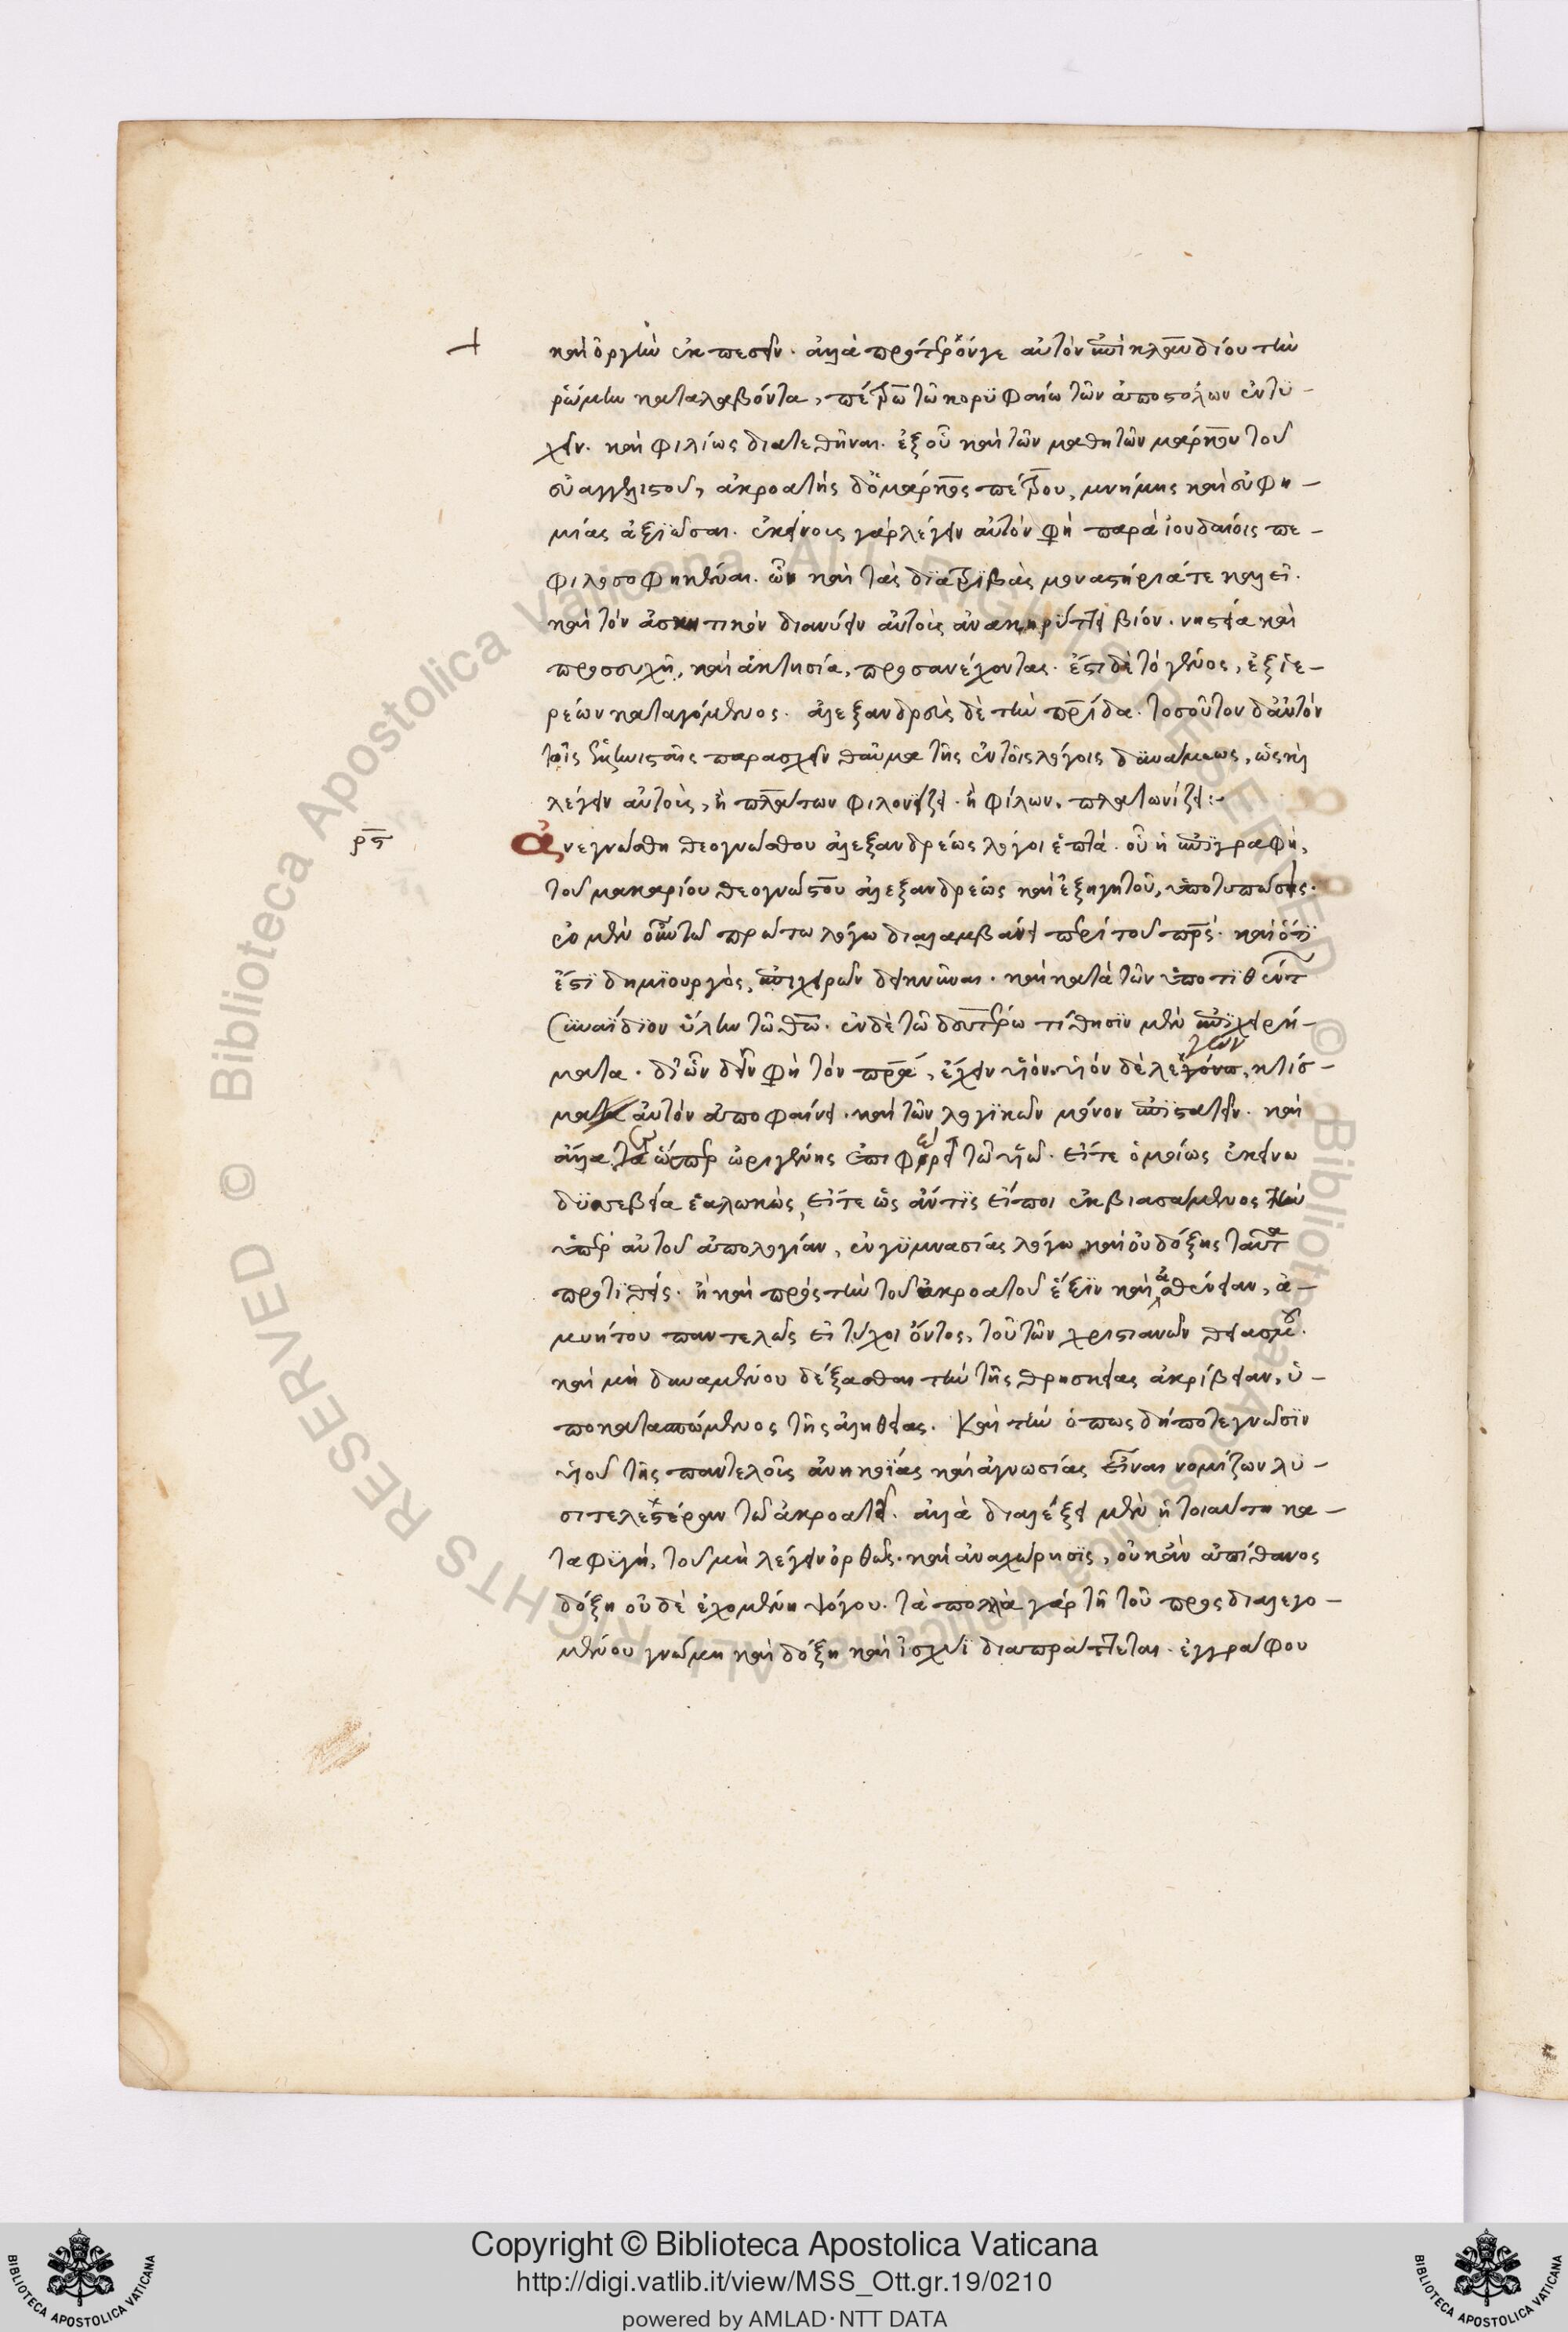 καὶ ὀργὴν ἐκπεσεῖν. ἀλλὰ πρότερόν γε αὐτὸν ἐπὶ κλαυδίου τὴν
ῥώμην καταλαβόντα, πέτρω τῶ κορυφαίω τῶν ἀποστόλων ἐντυ-
χεῖν. καὶ φιλίως διατεθῆναι. ἐξ οὗ καὶ τῶν μαθητῶν μάρκου τοῦ
εὐαγγελιστοῦ, ἀκροατὴς δ' ὁ μάρκος πέτρου, μνήμης καὶ εὐφη-
μίας ἀξιῶσαι. ἐκείνοις γὰρ λέγειν αὐτόν φησι παρὰ ἰουδαίοις πε-
φιλοσοφηκέναι. ὧν καὶ τὰς διατριβὰς μοναστήριά τε καλεῖ.
καὶ τὸν ἀσκητικὸν διανύειν αὐτοὺς ἀνακηρύττει βίον. νηστεία καὶ
προσευχῆ, καὶ ἀκτησία, προσανέχοντας. ἔστι δὲ τὸ γένος, ἐξ ἱε-
ρέων καταγόμενος. ἀλεξανδρεὺς δὲ τὴν πρίδα. τοσοῦτον δ' αὐτὸν
τοῖς ἑλληνισταῖς παρασχεῖν θαῦμα τῆς ἐν τοῖς λόγοις δυνάμεως, ὡς καὶ
λέγειν αὐτοὺς, ἢ πλάτων φιλονίζει. ἢ φίλων, πλατωνίζει:-
ρς
ἀνεγνώσθη θεογνώστου ἀλεξανδρέως λόγοι ἑπτά. οὗ ἡ ἐπιγραφὴ,
τοῦ μακαρίου θεογνώστου ἀλεξανδρέως καὶ ἐξηγητοῦ, ὑποτυπώσεις.
ἐν μὲν οὖν τῶ πρώτω λόγω διαλαμβάνει περὶ τοῦ πρς. καὶ ὅτι
ἐστὶ δημιουργὸς, ἐπιχειρῶν δεικνύναι. καὶ κατὰ τῶν ὑποτιθέντ
συναΐδιον ὕλην τῶ θω. ἐν δὲ τῶ δευτέρω τίθησιν μὲν ἐπιχειρή-
ματα. δι' ὧν δεῖν φησι τὸν πρα, ἔχειν υἱόν. υἱὸν δὲ λέγων, κτίσ-
μα αὐτὸν ἀποφαίνει. καὶ τῶν λογικῶν μόνον ἐπιστατεῖν. καὶ
ἄλλα ἅττα ὥσπερ ὠριγένης ἐπιφέρει τῶ υἱῶ. εἴτε ὁμοίως ἐκείνω
δυσσεβεία ἑαλωκὼς, εἴτε ὡς ἄν τις εἴποι ἐκβιασάμενος τὴν
ὑπὲρ αὐτοῦ ἀπολογίαν, ἐν γυμνασίας λόγω καὶ οὐ δόξης ταῦτα
προτιθείς. ἢ καὶ πρὸς τὴν τοῦ ἀκροατοῦ ἕξιν καὶ ἀσθένειαν, ἀ-
μυήτου παντελῶς εἰ τύχοι ὄντος, τοῦ τῶν χριστιανῶν θειασμοῦ.
καὶ μὴ δυναμένου δέξασθαι τὴν τῆς θρησκείας ἀκρίβειαν, ὑ-
ποκατασπώμενος τῆς ἀληθείας. καὶ τὴν ὁπωσδήποτε γνῶσιν
υἱοῦ τῆς παντελοῦς ἀνηκοΐας καὶ ἀγνωσίας εἶναι νομίζων λυ-
σιτελεστέραν τῶ ἀκροατῆ. ἀλλὰ διαλέξει μὲν ἡ τοιαύτη κα-
ταφυγὴ, τοῦ μὴ λέγειν ὀρθῶς. καὶ ἀναχώρησις, οὐκ ἂν ἀπίθανος
δόξη οὐδὲ ἐχομένη ψόγου. τὰ πολλὰ γὰρ τῆ τοῦ προσδιαλεγο-
μένου γνώμη καὶ δόξη καὶ ἰσχύϊ διαπράττεται. ἐγγράφου
Copyright © Biblioteca Apostolica Vaticana
http://digi.vatlib.it/view/MSS_Ott.gr.19/0210
powered by AMLAD·NTT DATA